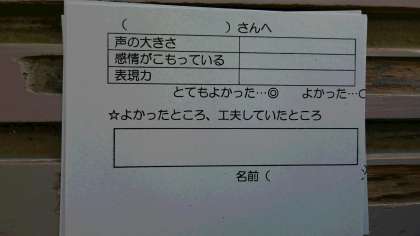 （　　　　　　　）さんへ
声の大きさ
感情がこもっている
表現力
とてもよかった…◎　よかった…○
☆よかったところ、工夫していたところ
名前（